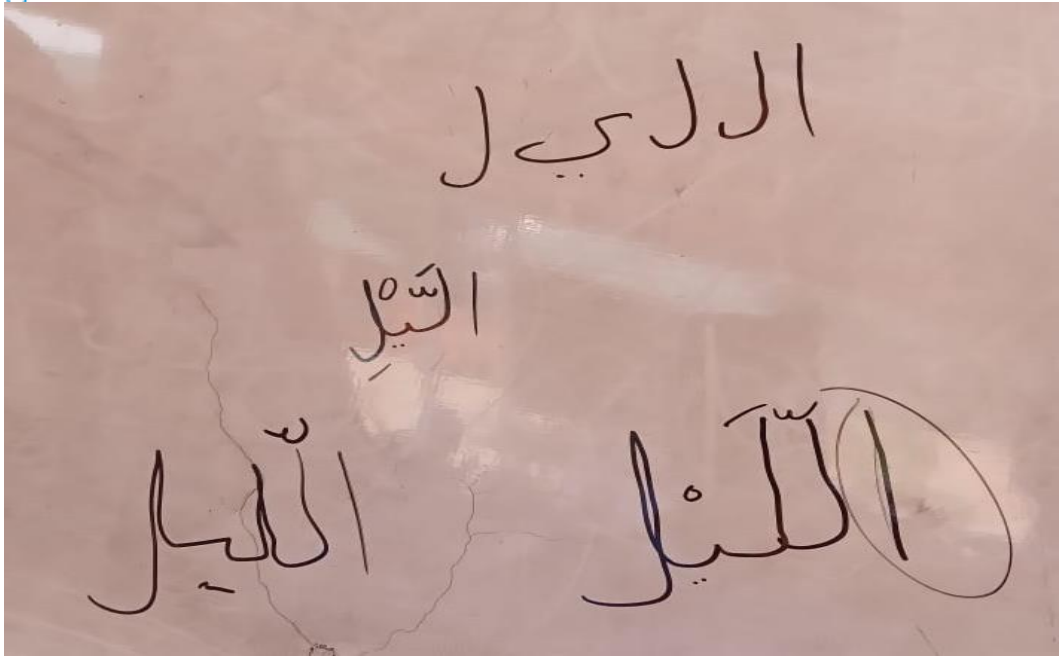 ا ل ل ي ل
الَّيْلِ
اللَّيْل اللّيل